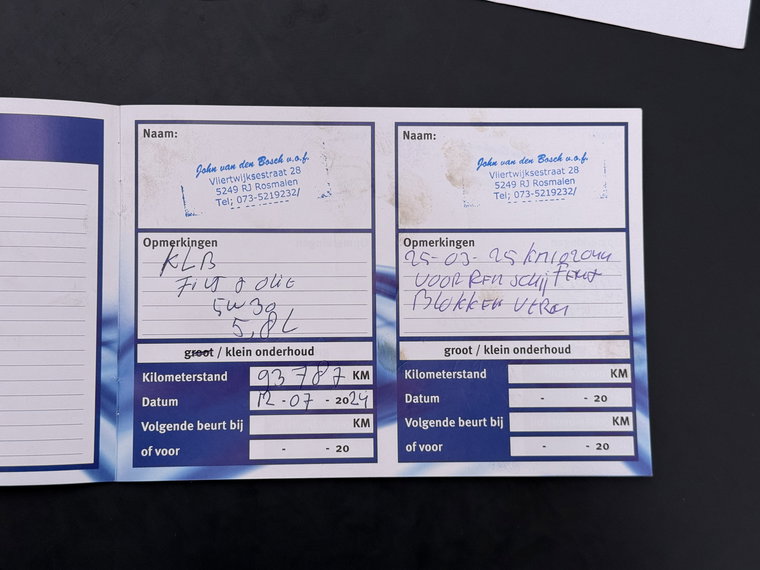 Naam:
John van den Bosch v.o.f.
Vliertwijksestraat 28
5249 RJ Rosmalen
Tel; 073-5219232/
Opmerkingen
KLB
FILT & OLIE
5W30
5,8L
groot / klein onderhoud
Kilometerstand 93787 KM
Datum 12-07-2024
Volgende beurt bij KM
of voor - - 20
Naam:
John van den Bosch v.o.f.
Vliertwijksestraat 28
5249 RJ Rosmalen
Tel; 073-5219232/
Opmerkingen
25-03-25
VOOR REM SCHIJ
BLOKKEN
groot / klein onderhoud
Kilometerstand KM
Datum - - 20
Volgende beurt bij KM
of voor - - 20